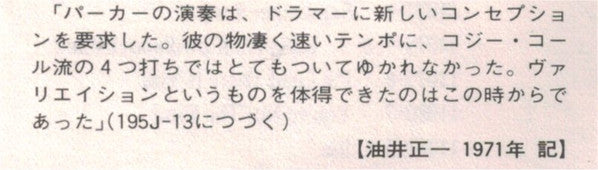 「パーカーの演奏は、ドラマーに新しいコンセプション
を要求した。彼の物凄く速いテンポに、コジー・コー
ル流の4つ打ちではとてもついてゆかれなかった。ヴァ
リエイションというものを体得できたのはこの時からで
あった」(195J-13につづく)
【油井正一 1971年 記】